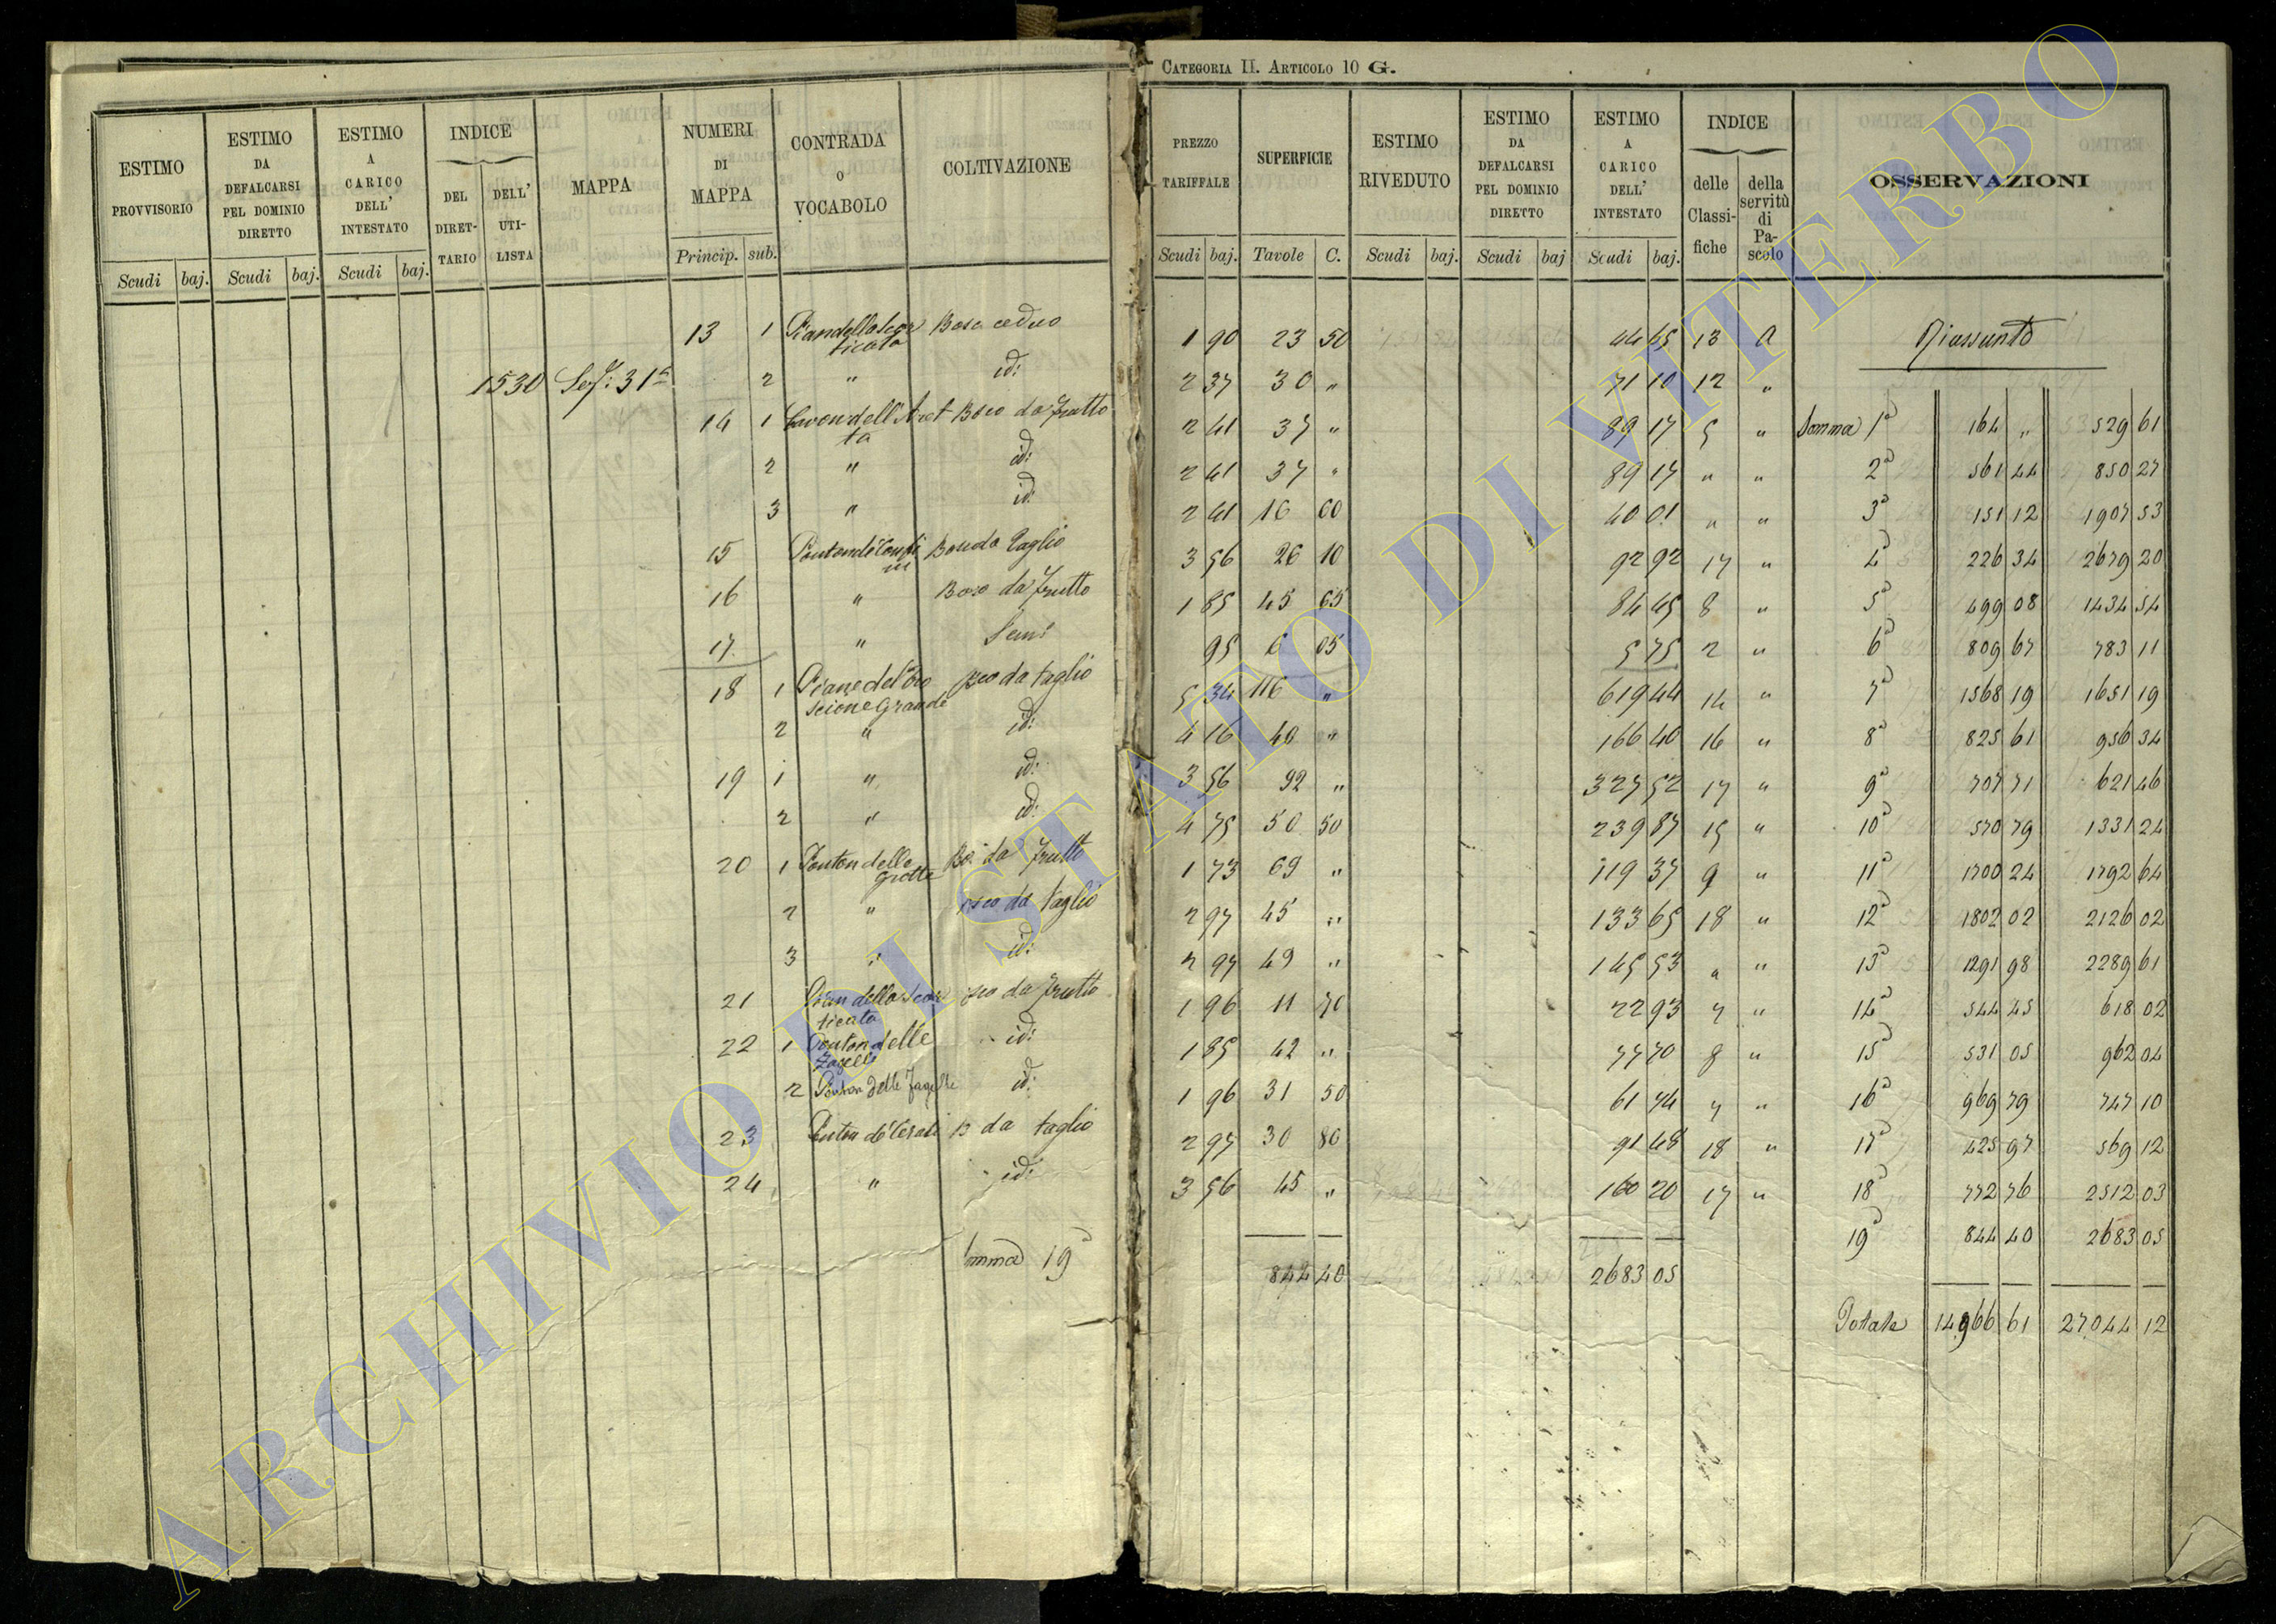 CATEGORIA II. ARTICOLO 10 G.
ESTIMO PROVVISORIO
ESTIMO DA DEFALCARSI PEL DOMINIO DIRETTO
ESTIMO A CARICO DELL' INTESTATO
INDICE
DEL DIRETTARIO
DELL' UTILISTA
MAPPA
NUMERI DI MAPPA
CONTRADA O VOCABOLO
COLTIVAZIONE
Scudi baj. Scudi baj. Scudi baj. Princip. sub.
PREZZO TARIFFALE
SUPERFICIE
ESTIMO RIVEDUTO
ESTIMO DA DEFALCARSI PEL DOMINIO DIRETTO
ESTIMO A CARICO DELL' INTESTATO
INDICE
delle Classifiche
della servitù di Pascolo
OSSERVAZIONI
Scudi baj. Tavole C. Scudi baj. Scudi baj Scudi baj.
13 1 Bosco ceduo 1 90 23 50 44 65 13 a Riassunto
1530 Sez: 31ª 2 " id: 2 37 30 " 71 10 12 "
14 1 Bosco da frutto 2 41 37 " 89 17 5 " Somma 1ª 164 " 529 61
2 " id: 2 41 37 " 89 17 " " 2ª 561 44 850 27
3 " id: 2 41 16 60 40 01 " " 3ª 151 12 1907 53
15 Bosco da Taglio 3 56 26 10 92 92 17 " 4ª 226 34 2679 20
16 " Bosco da frutto 1 85 45 65 84 45 8 " 5ª 499 08 1434 54
17 " Semi 95 6 05 5 75 2 " 6ª 809 67 783 11
18 1 da taglio 5 34 116 " 619 44 14 " 7ª 1568 19 1651 19
2 " id: 4 16 40 " 166 40 16 " 8ª 825 61 956 34
19 1 " id: 3 56 92 " 327 52 17 " 9ª 707 71 621 46
2 " id: 4 75 50 50 239 87 15 " 10ª 570 79 1331 24
20 1 Ponton delle Grotte da frutto 1 73 69 " 119 37 9 " 11ª 1700 24 1792 64
2 " da taglio 2 97 45 " 133 65 18 " 12ª 1802 02 2126 02
3 " id: 2 97 49 " 145 53 " " 13ª 1291 98 2289 61
21 Pian della Scorticata da frutto 1 96 11 70 22 93 7 " 14ª 544 45 618 02
22 1 Ponton delle id: 1 85 42 " 77 70 8 " 15ª 531 05 962 04
2 Ponton delle id: 1 96 31 50 61 74 7 " 16ª 969 79 747 10
23 B da taglio 2 97 30 80 91 48 18 " 17ª 425 97 569 12
24 " id: 3 56 45 " 160 20 17 " 18ª 772 76 2512 03
19ª 844 40 2683 05
Somma 19ª 844 40 2683 05
Totale 14966 61 27044 12
ARCHIVIO DI STATO DI VITERBO